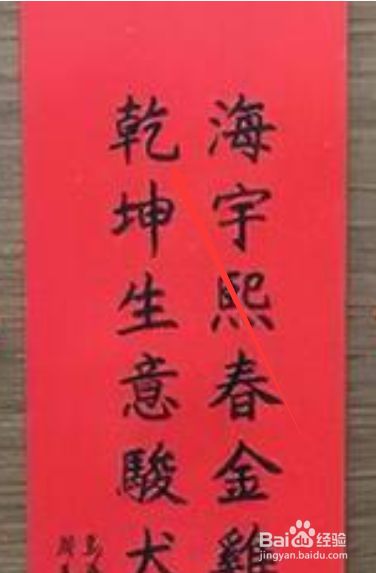 海宇熙春金雞
乾坤生意駿犬
Baidu经验
jingyan.baidu.com